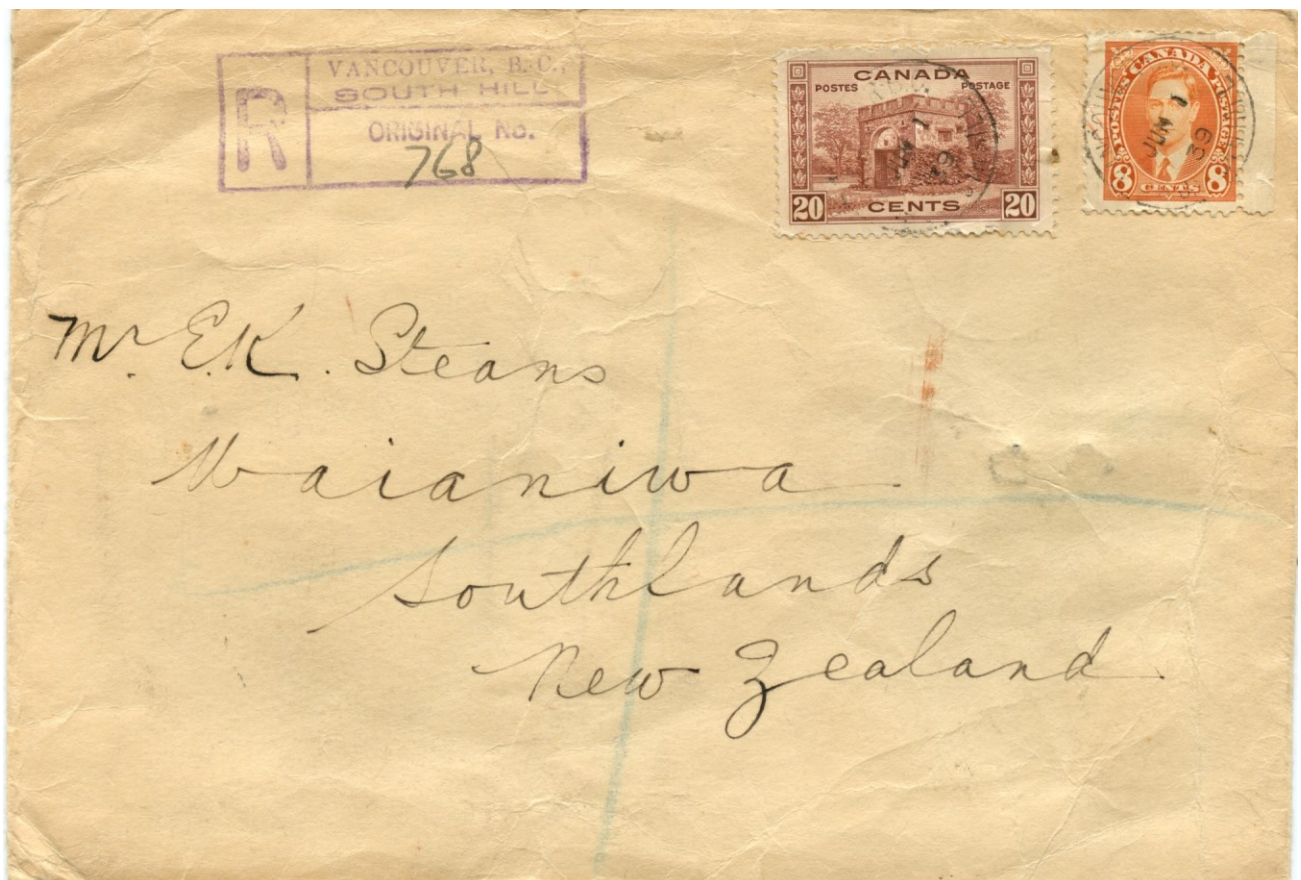 R
VANCOUVER, B.C.,
SOUTH HILL
ORIGINAL NO.
768
CANADA
POSTES POSTAGE
20 CENTS 20
POSTES CANADA POSTAGE
8 CENTS 8
JUN 1
39
JUN 1
39
Mr. E.K. Steans
Waianiwa
Southlands
New Zealand.